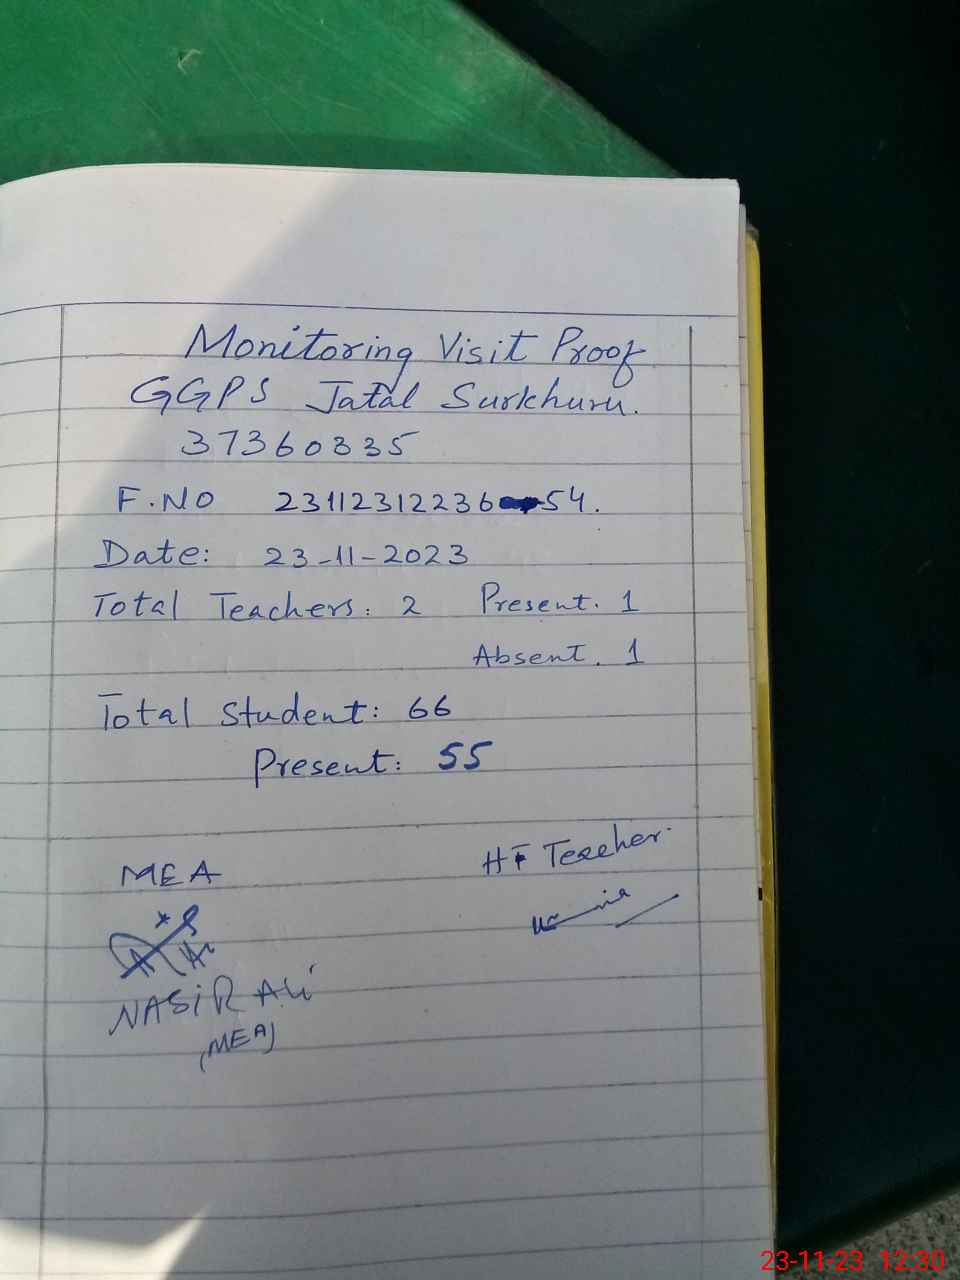 Monitoring Visit Proof
GGPS Jatal Surkhuru.
37360335
F.NO 23112312236 54.
Date: 23-11-2023
Total Teachers: 2 Present. 1
Absent. 1
Total Student: 66
Present: 55
MEA
HT Teacher.
NASIR Ali
(MEA)
23-11-23 12:30